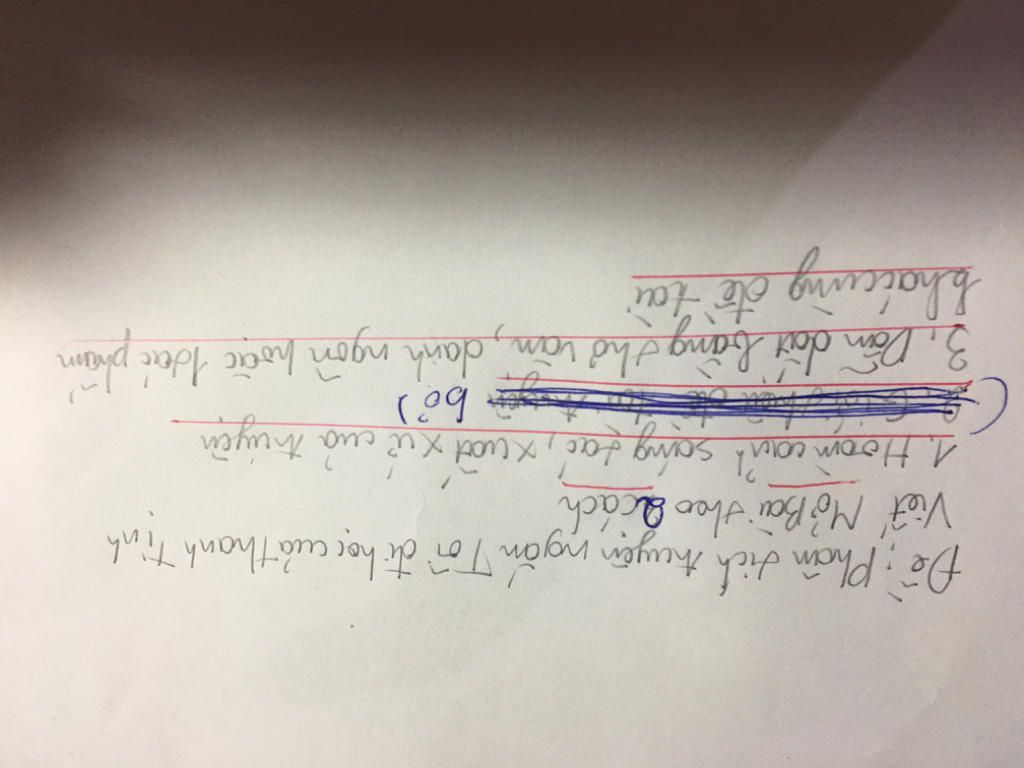 Đề: Phân tích truyện ngắn Tôi đi học của Thanh Tịnh
Viết Mở Bài theo 2 cách
1. Hoàn cảnh sáng tác, xuất xứ của truyện
bỏ)
3. Dẫn dắt bằng thơ văn, danh ngôn hoặc tác phẩm
khác cùng đề tài